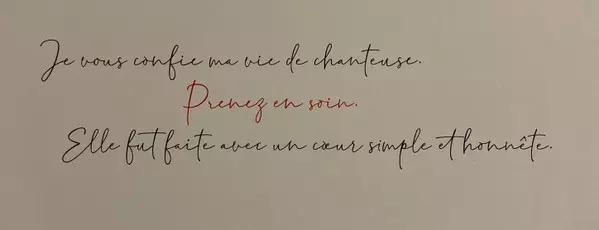 Je vous confie ma vie de chanteuse.
Prenez en soin.
Elle fut faite avec un cœur simple et honnête.